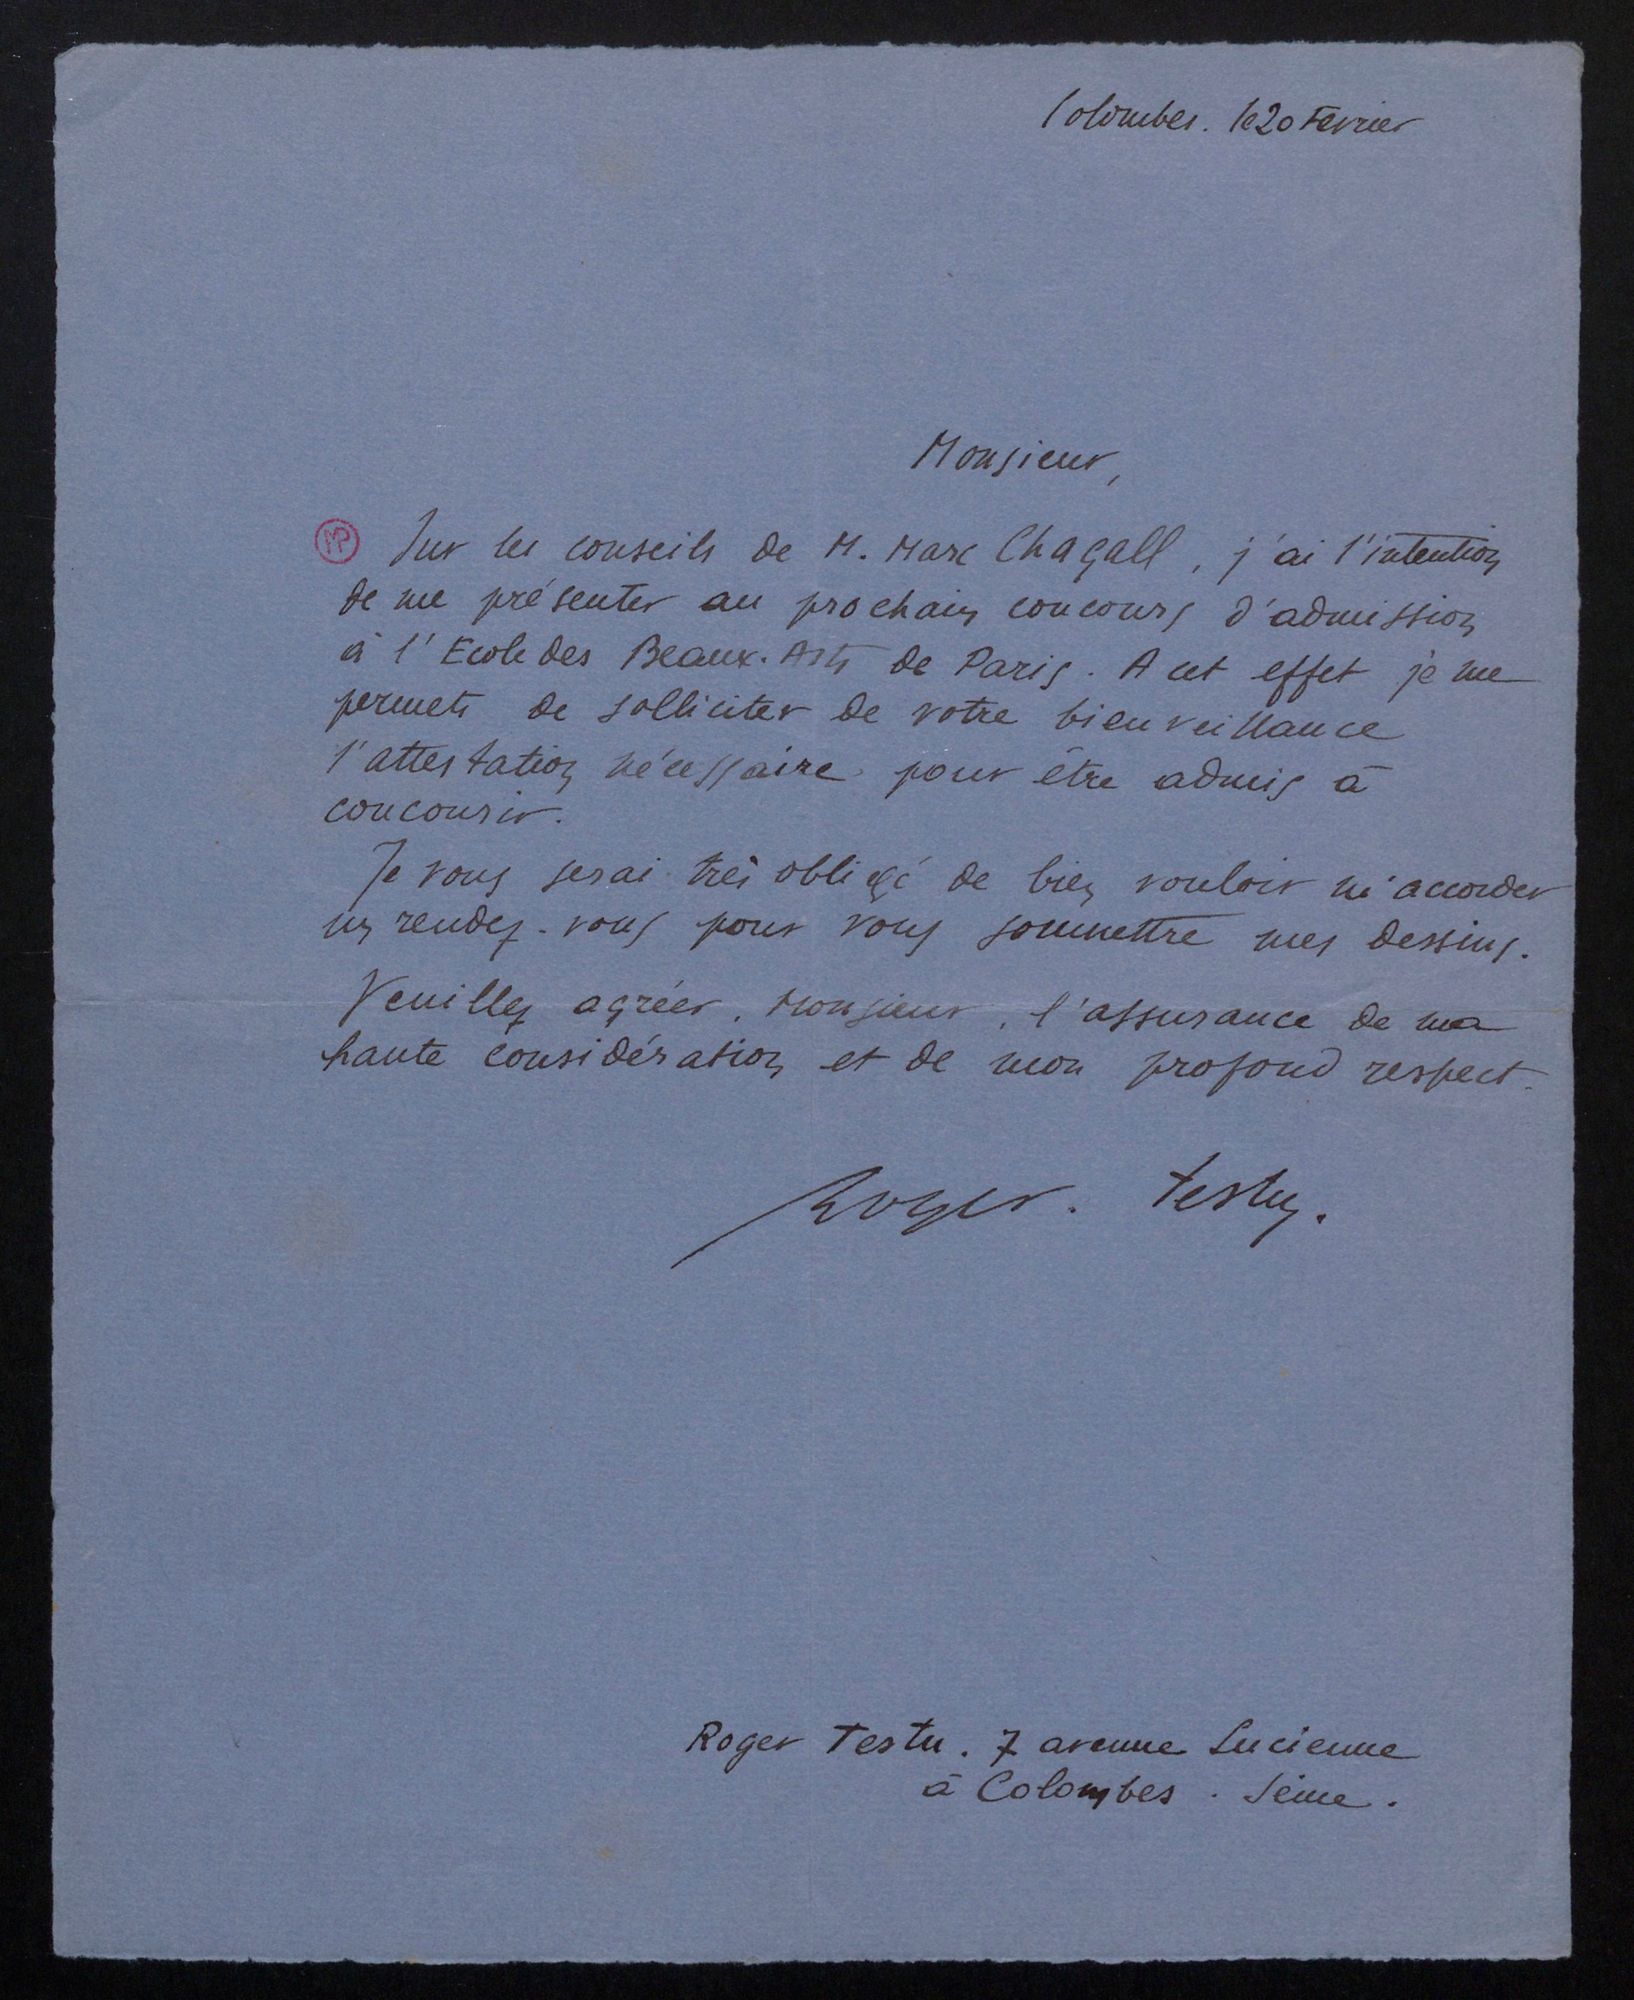 Colombes. le 20 Fevrier
Monsieur,
MP
Sur les conseils de M. Marc Chagall, j'ai l'intention
de me présenter au prochain concours d'admission
à l'Ecole des Beaux-Arts de Paris. A cet effet je me
permets de solliciter de votre bienveillance
l'attestation nécessaire pour être admis à
concourir.
Je vous serai très obligé de bien vouloir m'accorder
un rendez-vous pour vous soumettre mes dessins.
Veuillez agréer, Monsieur, l'assurance de ma
haute considération et de mon profond respect.
Roger. Testu.
Roger Testu. 7 avenue Lucienne
à Colombes. Seine.